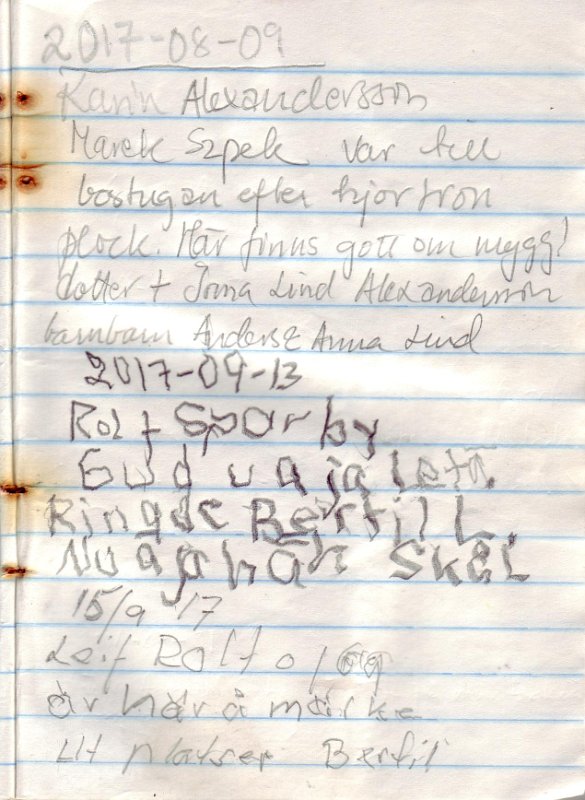 2017-08-09
Karin Alexandersson
Marek Szpek var till
bostugan efter hjortron
plock. Här finns gott om mygg!
dotter + Inna Lind Alexandersson
barnbarn Anders & Anna Lind
2017-09-13
Rolf Sparby
Gud va ja leta.
Ringde Bertill L.
Nu a ja här Skål
15/9 17
Leif Rolf o jag
är här å märke
ut platser Bertil